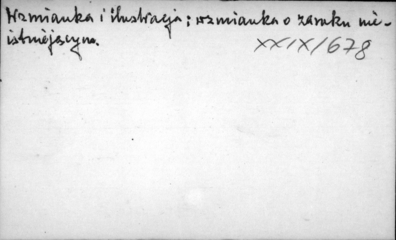 Wzmianka i ilustracja; wzmianka o zamku nie-
istniejącym.
XXIX/678